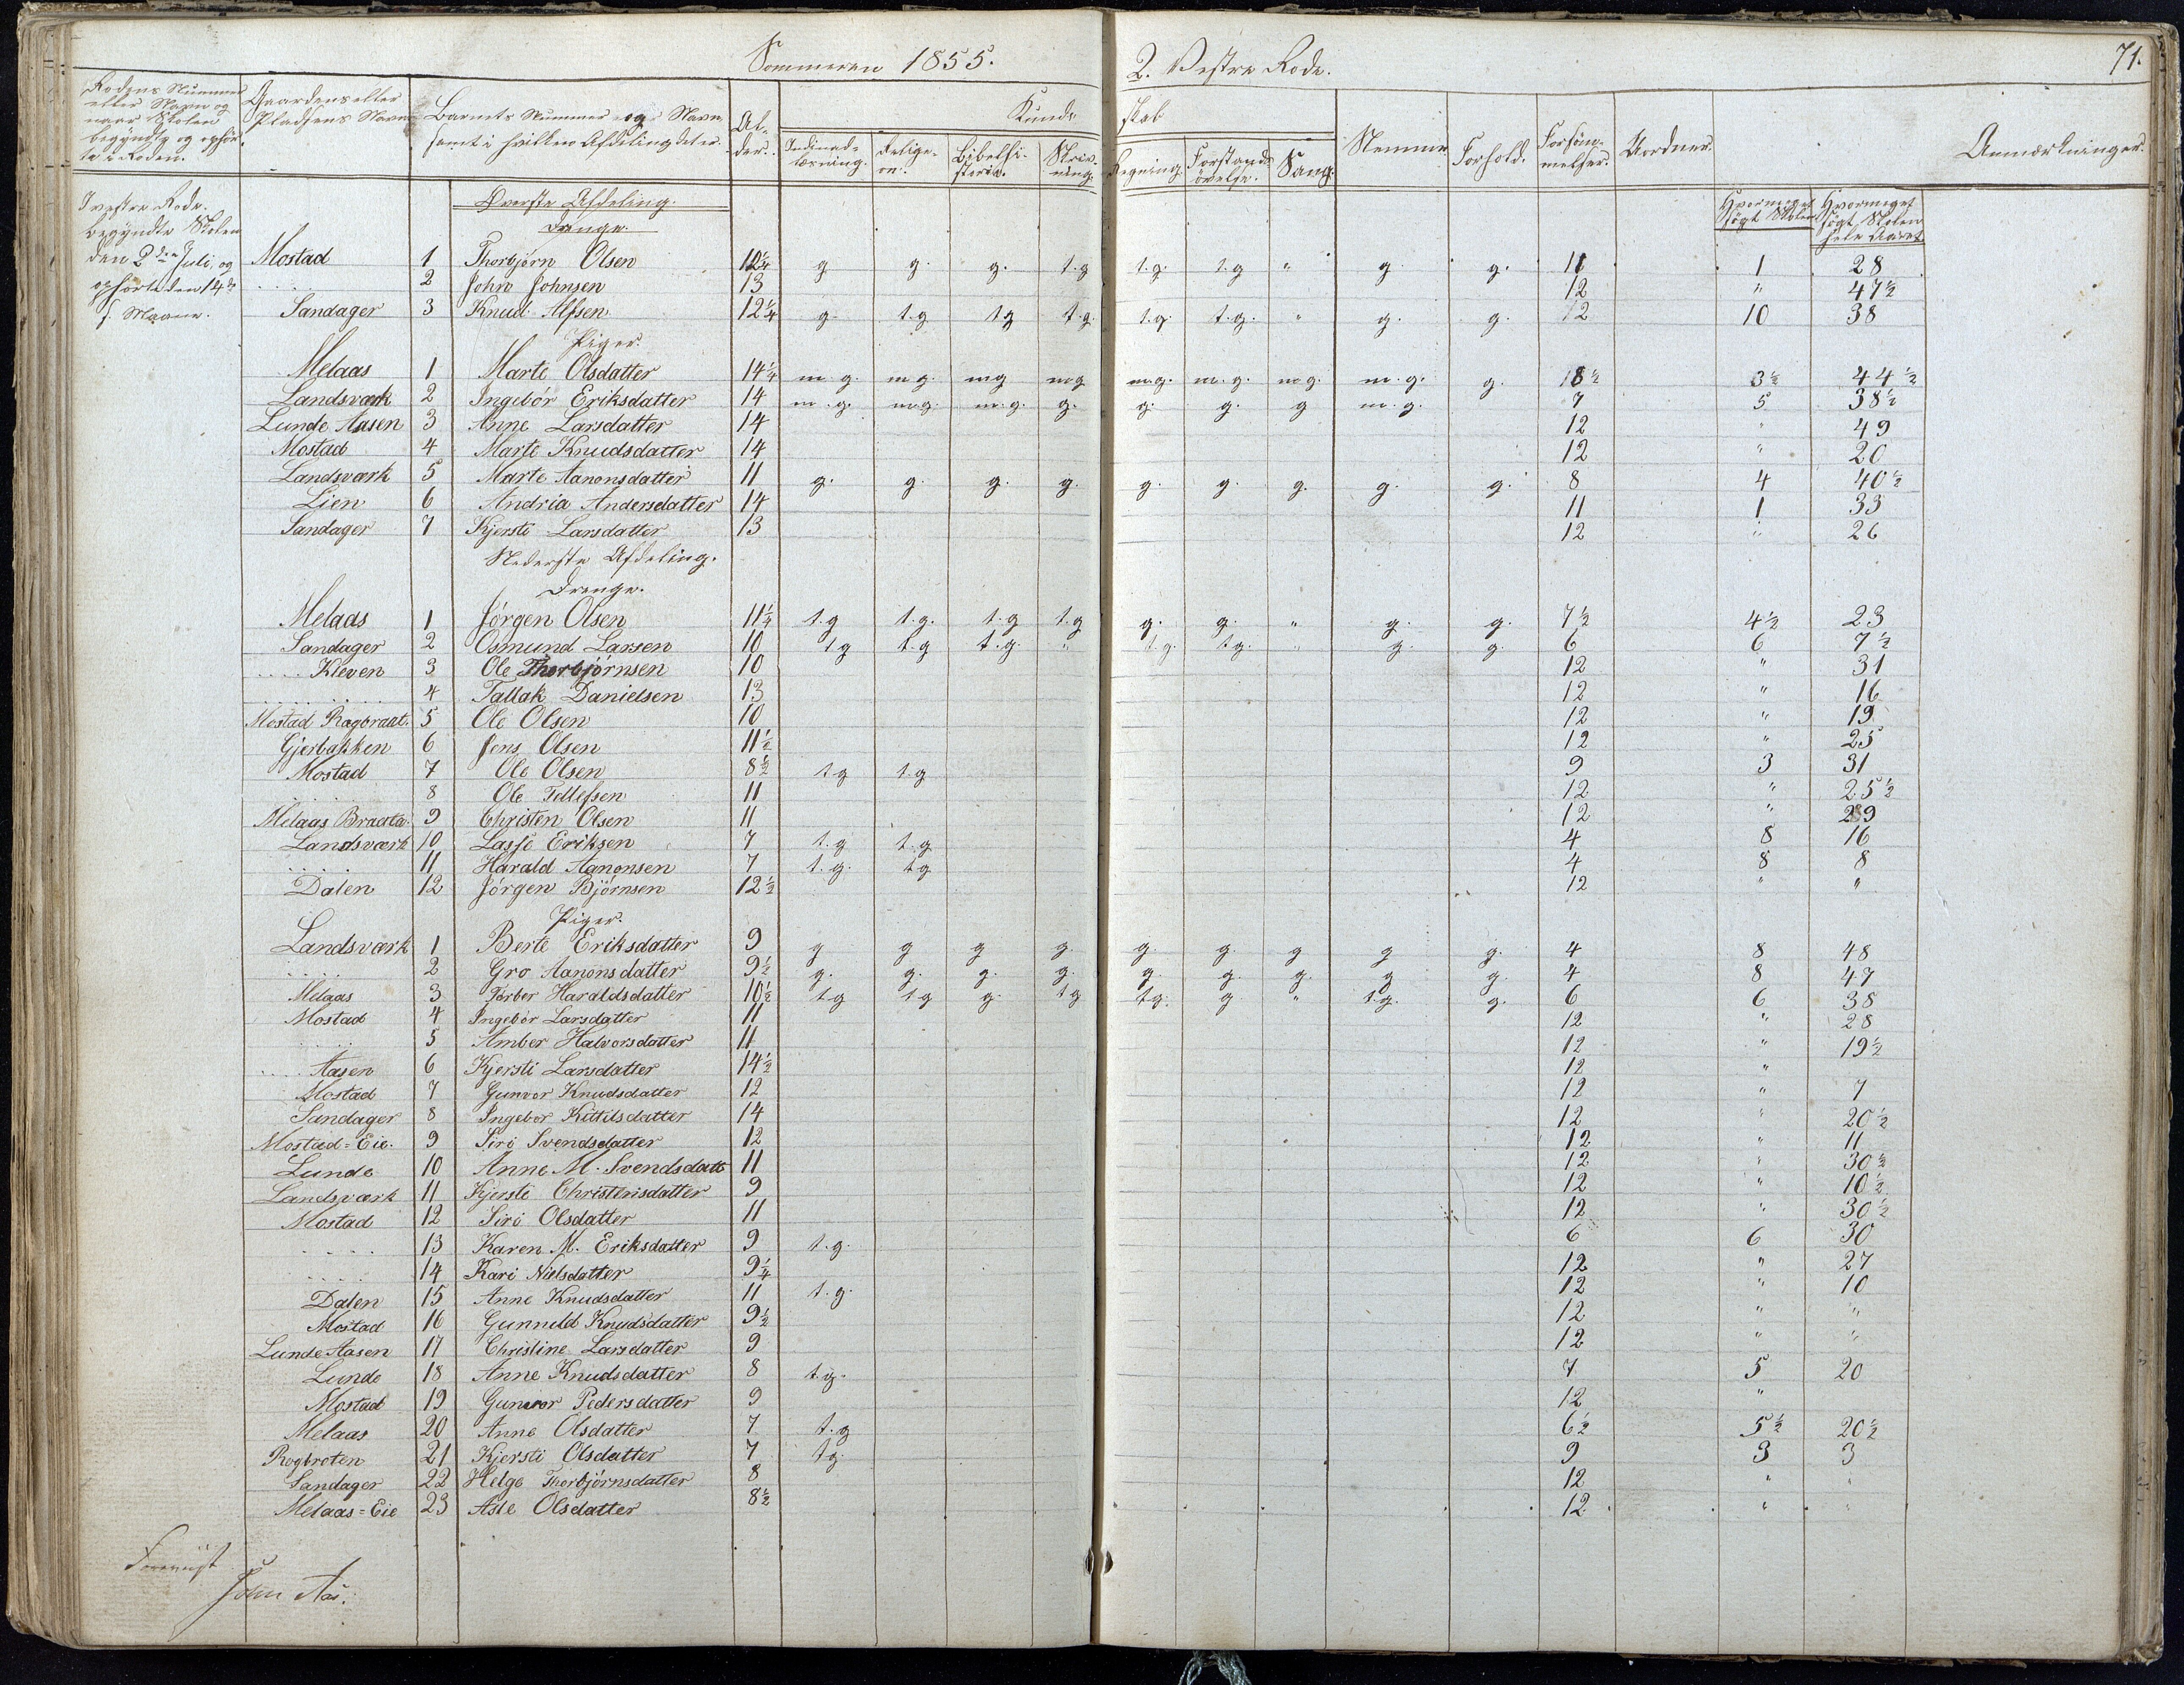 Sommeren 1855.
2. Vestre Rode.
71.
Rodens Nummer eller Navn og naar Skolen begyndte og ophørte i Roden.
Gaardens eller Pladsens Navn
Barnets Nummer og Navn samt i hvilken Afdeling det er.
Alder.
Kundskab
Indenadslæsning.
Religion.
Bibelhistorie.
Skrivning.
Regning.
Forstandsøvelse.
Sang.
Nemme.
Forhold.
Forsömmelser.
Uordner.
Anmærkninger.
Hvormeget søgt Skolen
Hvormeget søgt Skolen hele Aaret.
I vestre Rode.
begyndte Skolen
den 2den Juli, og
ophørte den 14de
s. Maane.
Øverste Afdeling.
Drenge.
Mostad 1 Thorbjørn Olsen 12 1/4 g g. g. t.g t.g. t.g " g g. 11 1 28
..... 2 John Johnsen 13 12 " 47 1/2
Sandager 3 Knud Alfsen 12 1/4 g. t.g t.g t.g. t.g. t.g. " g. g. 12 10 38
Piger.
Melaas 1 Marte Olsdatter 14 1/4 m.g. m.g. mg m.g m.g. m.g. m.g. m.g. g. 8 1/2 3 1/2 44 1/2
Landsværk 2 Ingebør Eriksdatter 14 m.g. m.g. m.g. g. g. g. g m.g. 7 5 38 1/2
Lunde Aasen 3 Anne Larsdatter 14 12 " 49
Mostad 4 Marte Knudsdatter 14 12 " 20
Landsværk 5 Marte Aanonsdatter 11 g. g. g. g. g. g. g. g. g. 8 4 40 1/2
Lien 6 Andria Andersdatter 14 11 1 33
Sandager 7 Kjersti Larsdatter 13 12 " 26
Nederste Afdeling.
Drenge.
Melaas 1 Jørgen Olsen 11 1/4 t.g t.g. t.g t.g g. g. " g. g. 7 1/2 4 1/2 23
Sandager 2 Osmund Larsen 10 t g t.g t.g. " t.g. tg. " g. g. 6 6 7 1/2
.... Kleven 3 Ole Thorbjørnsen 10 12 " 31
..... 4 Tallak Danielsen 13 12 " 16
Mostad Rogbraat. 5 Ole Olsen 10 12 " 19
Gjerbakken 6 Jens Olsen 11 1/2 12 " 25
Mostad 7 Ole Olsen 8 1/2 t.g t.g 9 3 31
..... 8 Ole Tellefsen 11 12 " 25 1/2
Melaas Braata. 9 Christen Olsen 11 12 " 29
Landsværk 10 Lasse Eriksen 7 t.g t.g 4 8 16
..... 11 Harald Aanonsen 7 t.g. tg 4 8 8
Dalen 12 Jørgen Bjørnsen 12 1/2 12 " "
Piger.
Landsværk 1 Berte Eriksdatter 9 g g g g. g. g. g g g. 4 8 48
..... 2 Gro Aanonsdatter 9 1/2 g. g. g. g. g. g. g. g g. 4 8 47
Melaas 3 Torbør Haraldsdatter 10 1/2 t.g t g g. t g t.g. g. " t.g. g. 6 6 38
Mostad 4 Ingebør Larsdatter 11 12 " 28
..... 5 Amber Halvorsdatter 11 12 " 19 1/2
.... Aasen 6 Kjersti Larsdatter 14 1/2 12 "
Mostad 7 Gunvor Knudsdatter 12 12 " 7
Sandager 8 Ingebor Kittilsdatter 14 12 " 20 1/2
Mostad=Eie. 9 Siri Svendsdatter 12 12 " 11
Lunde 10 Anne M. Svendsdatt 11 12 " 30 1/2
Landsværk 11 Kjersti Christensdatter 9 12 " 10 1/2
Mostad 12 Siri Olsdatter 11 12 " 30 1/2
.... 13 Karen M. Eriksdatter 9 t.g. 6 6 30
.... 14 Kari Nielsdatter 9 1/4 12 " 27
Dalen 15 Anne Knudsdatter 11 t.g. 12 " 10
Mostad 16 Gunnild Knudsdatter 9 1/2 12 " "
Lunde Aasen 17 Christine Larsdatter 9 12 " "
Lunde 18 Anne Knudsdatter 8 t.g. 7 5 20
Mostad 19 Gunvor Pedersdatter 9 12 "
Melaas 20 Anne Olsdatter 7 t.g 6 1/2 5 1/2 20 1/2
Rogbroten 21 Kjersti Olsdatter 7 tg. 9 3 3
Sandager 22 Helge Thorbjørnsdatter 8 12 "
Melaas=Eie 23 Asle Olsdatter 8 1/2 12 "
Forevist
John Aas.